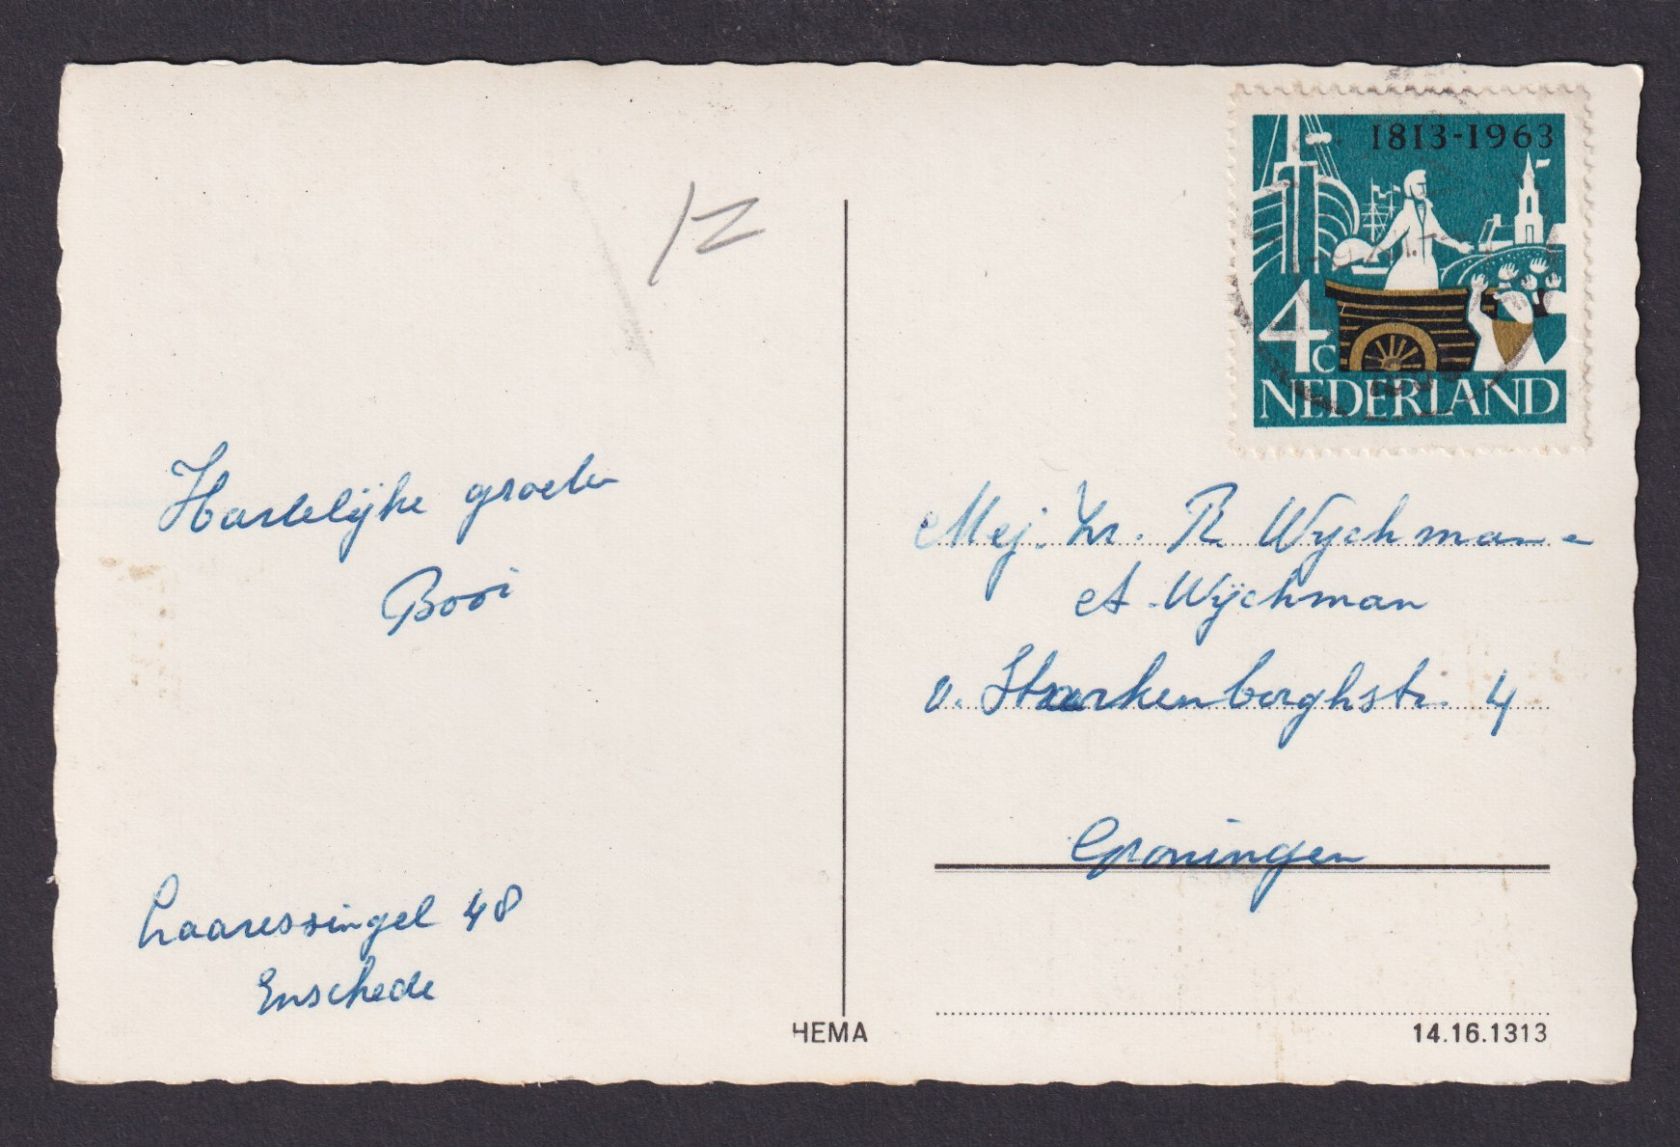 1813-1963
4c
NEDERLAND
12
Hartelijke groeten
Booi
Laaressingel 48
Enschede
Mej. Zr. R. Wychman -
A. Wijchman
v. Starkenborghstr. 4
Groningen
HEMA
14.16.1313